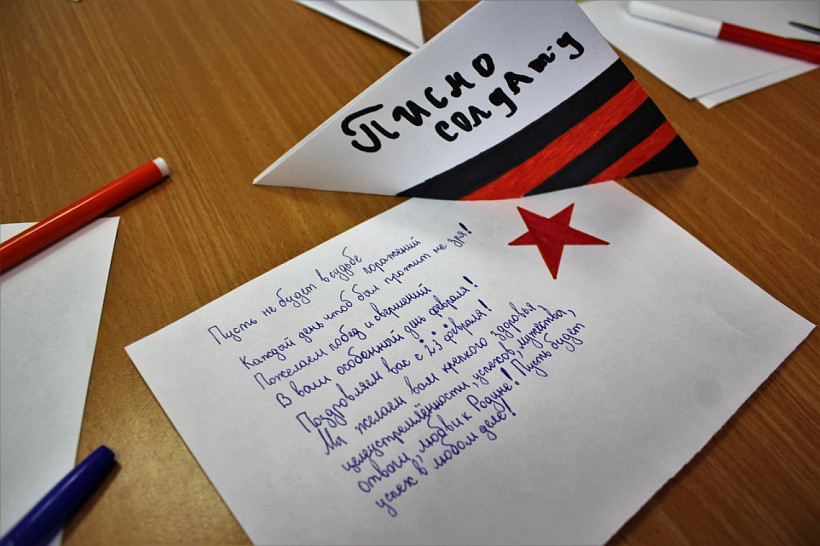 Писмо
солдату
Пусть не будет в судьбе поражений
Каждый день чтоб был прожит не зря!
Пожелаем побед и свершений
В ваш особенный день февраля!
Поздровляем вас с 23 февраля!
Мы желаем вам крепкого здоровья,
целеустремлённости, успехов, мужества,
отваги, любви к Родине! Пусть будет
успех в любом деле!